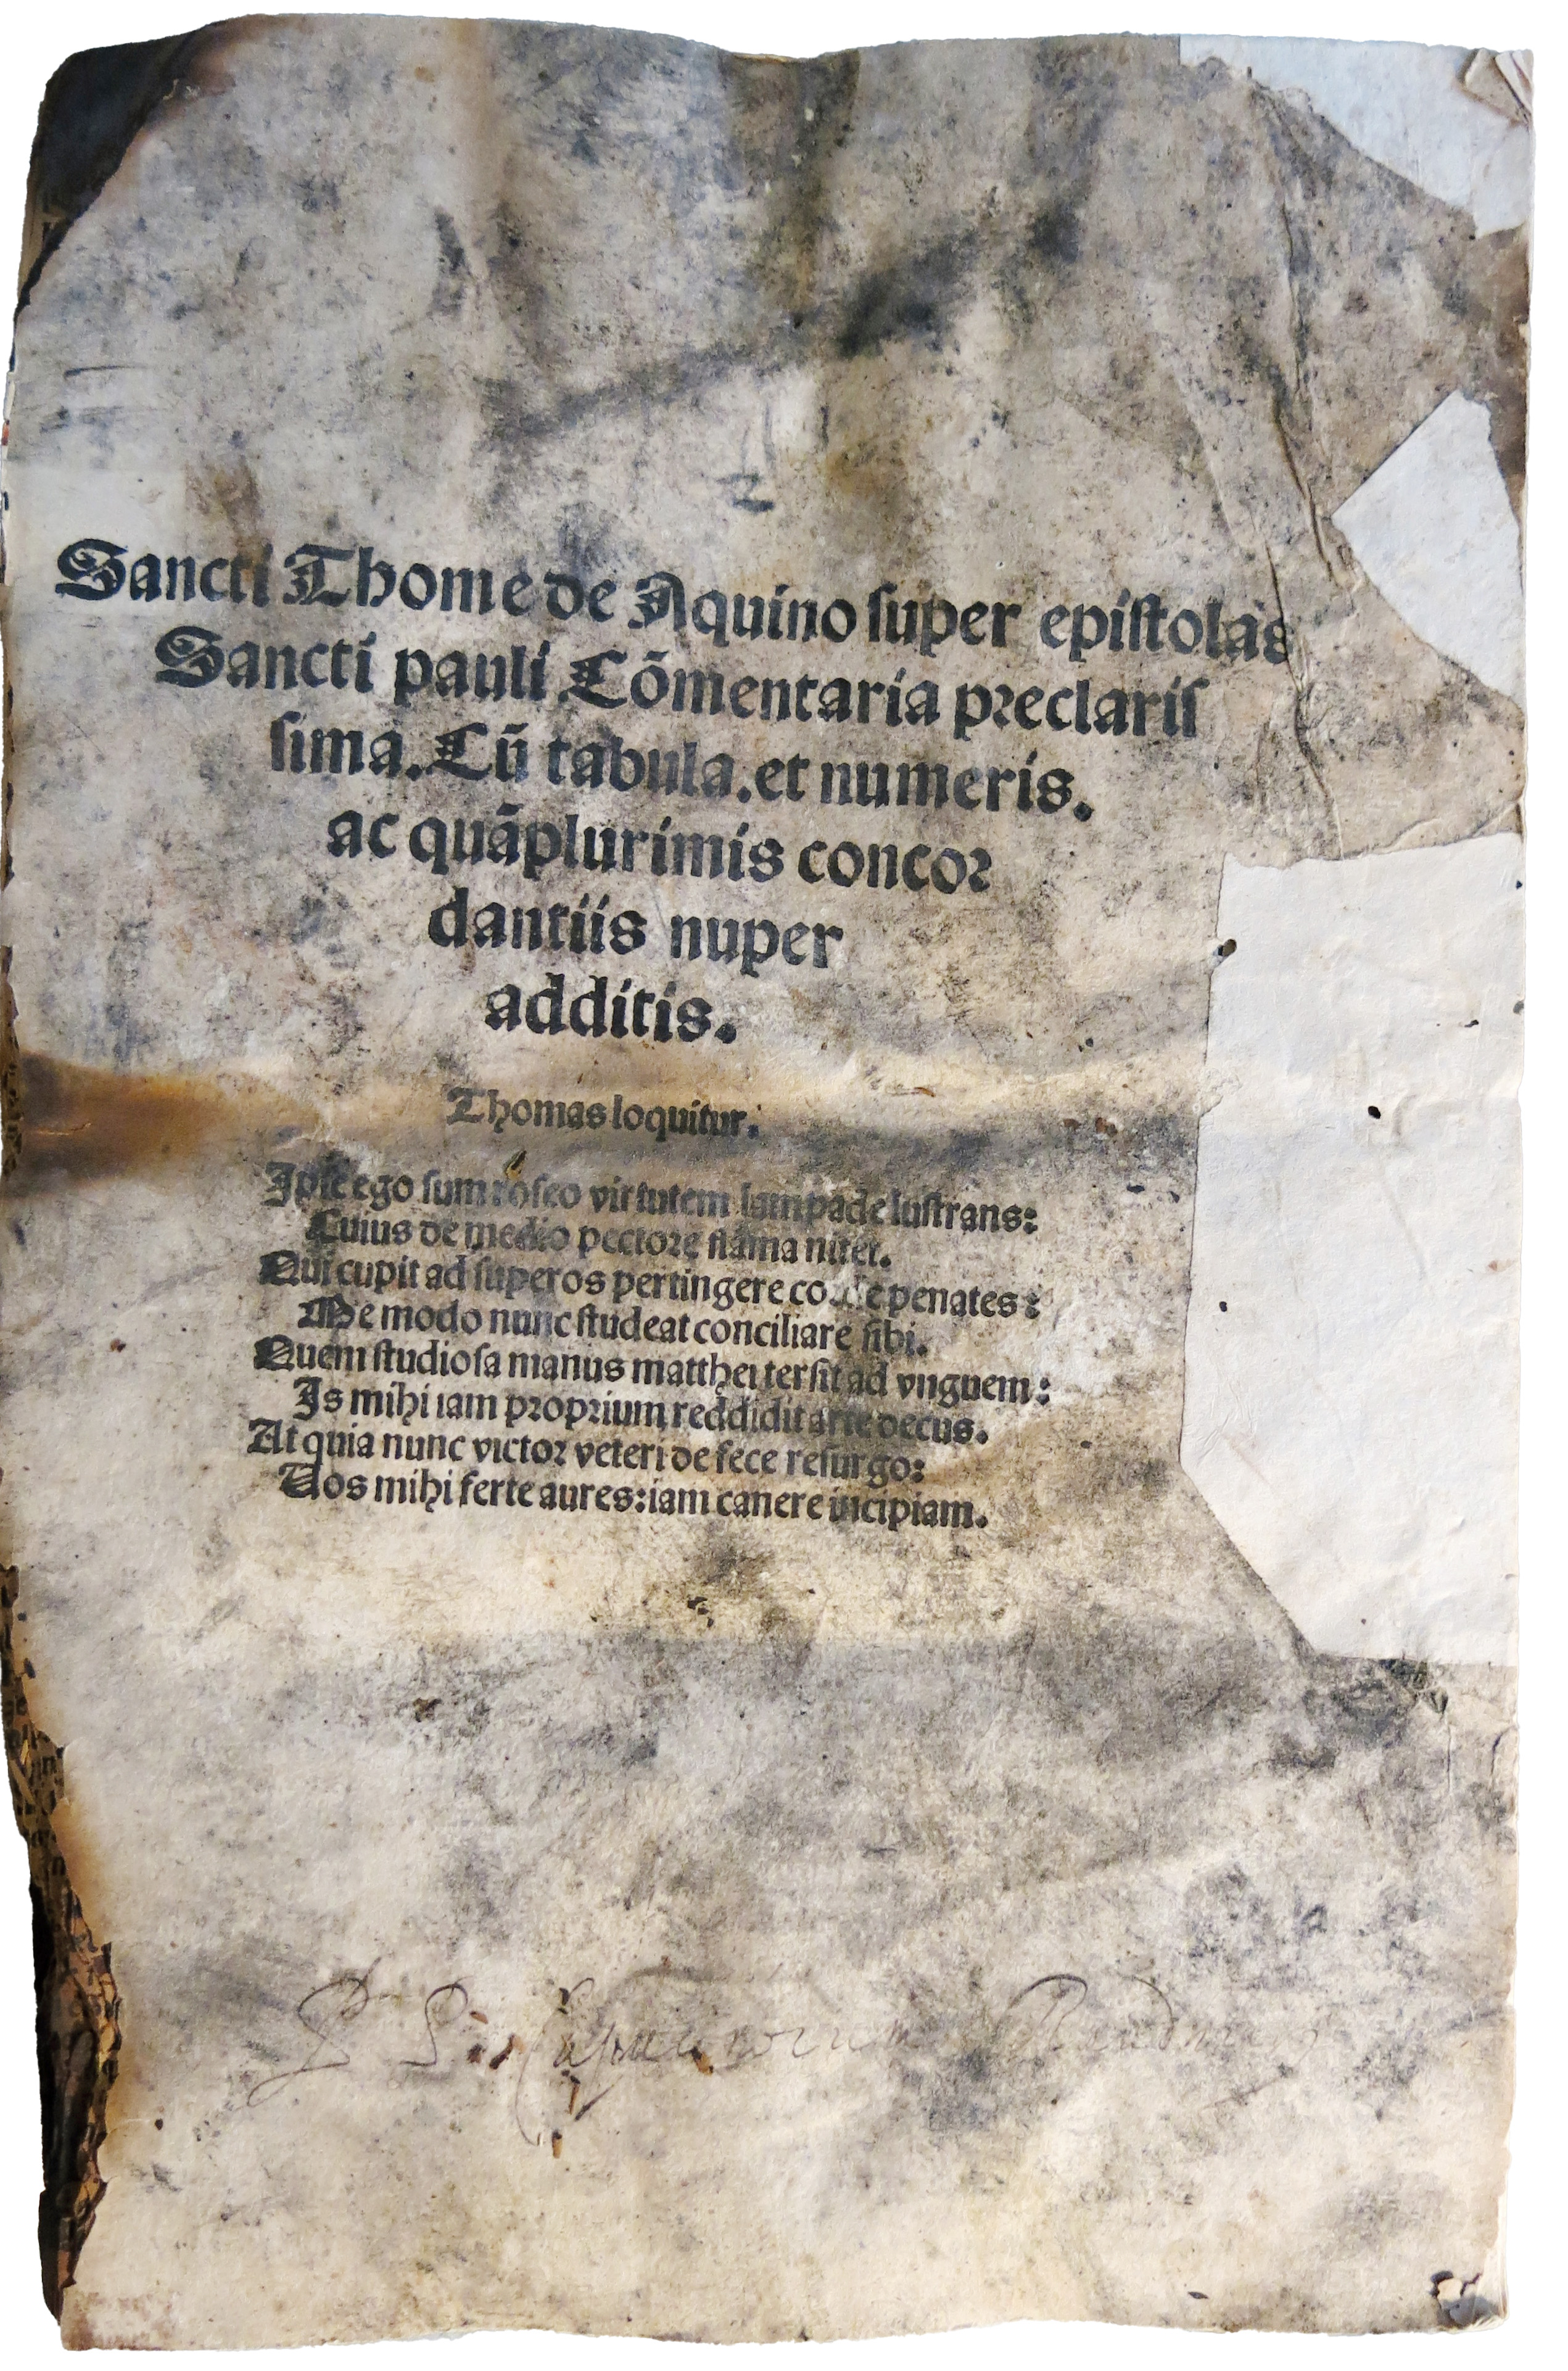 Sancti Thome de Aquino super epistolas
Sancti pauli Cōmentaria preclaris
sima. Cū tabula. et numeris.
ac quāplurimis concor
dantiis nuper
additis.
Thomas loquitur.
Ipse ego sum roseo virtutem lampade lustrans:
Cuius de medio pectore flāma nitet.
Qui cupit ad superos pertingere penates:
Me modo nunc studeat conciliare sibi.
Quem studiosa manus matthei tersit ad vnguem:
Is mihi iam proprium reddidit arte decus.
At quia nunc victor veteri de fece resurgo:
Vos mihi ferte aures: iam canere incipiam.